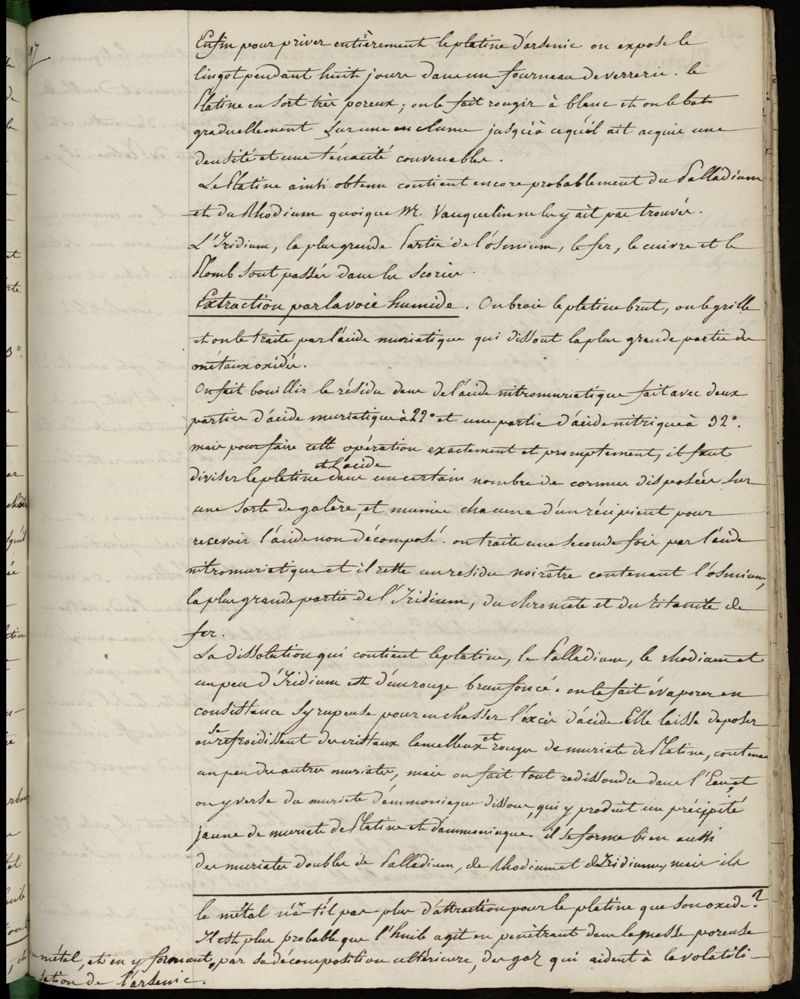 97
Enfin pour priver entièrement le platine d'arsenic on expose le
lingot pendant huit jours dans un fourneau de verrerie. le
Platine en sort très poreux; on le fait rougir à blanc et on le bat
graduellement sur une enclume jusqu'à ce qu'il ait acquis une
densité et une ténacité convenables.
Le Platine ainsi obtenu contient encore probablement du Palladium
et du Rhodium quoique Mr. Vauquelin ne l'y ait pas trouvés.
L'Iridium, la plus grande Partie de l'Osmium, le fer, le cuivre et le
Plomb sont passés dans les scories.
Extraction par la voie humide. On broie le platine brut, on le grille
et on le traite par l'acide muriatique qui dissout la plus grande partie des
métaux oxidés.
On fait bouillir le résidu dans de l'acide nitromuriatique fait avec deux
parties d'acide muriatique à 22° et une partie d'acide nitrique à 32°.
mais pour faire cette opération exactement et promptement, il faut
diviser le platine et l'acide dans un certain nombre de cornues disposées sur
une sorte de galère, et munies chacune d'un récipient pour
recevoir l'acide non décomposé. on traite une seconde fois par l'acide
nitromuriatique et il reste un residu noirâtre contenant l'osmium,
la plus grande partie de l'Iridium, du chromate et du titanate de
fer.
La dissolution qui contient le platine, le Palladium, le rhodium et
un peu d'Iridium est d'un rouge brun foncé. on la fait évaporer en
consistance syrupeuse pour en chasser l'excès d'acide Elle laisse deposer
en se refroidissant des cristaux lamelleux et rouges de muriate de Platine, contenant
un peu des autres muriates, mais on fait tout redissoudre dans l'Eau, et
on y verse du muriate d'ammoniaque dissous, qui y produit un précipité
jaune de muriate de Platine et d'ammoniaque. il se forme bien aussi
des muriates doubles de Palladium, de Rhodium et d'Iridium, mais ils
le métal n'a-t'il pas plus d'attraction pour le platine que son oxide?
Il est plus probable que l'huile agit en penétrant dans la masse poreuse
du métal, et en y formant, par sa décomposition ultérieure, des gaz qui aident à la volatili-
sation de l'arsenic.